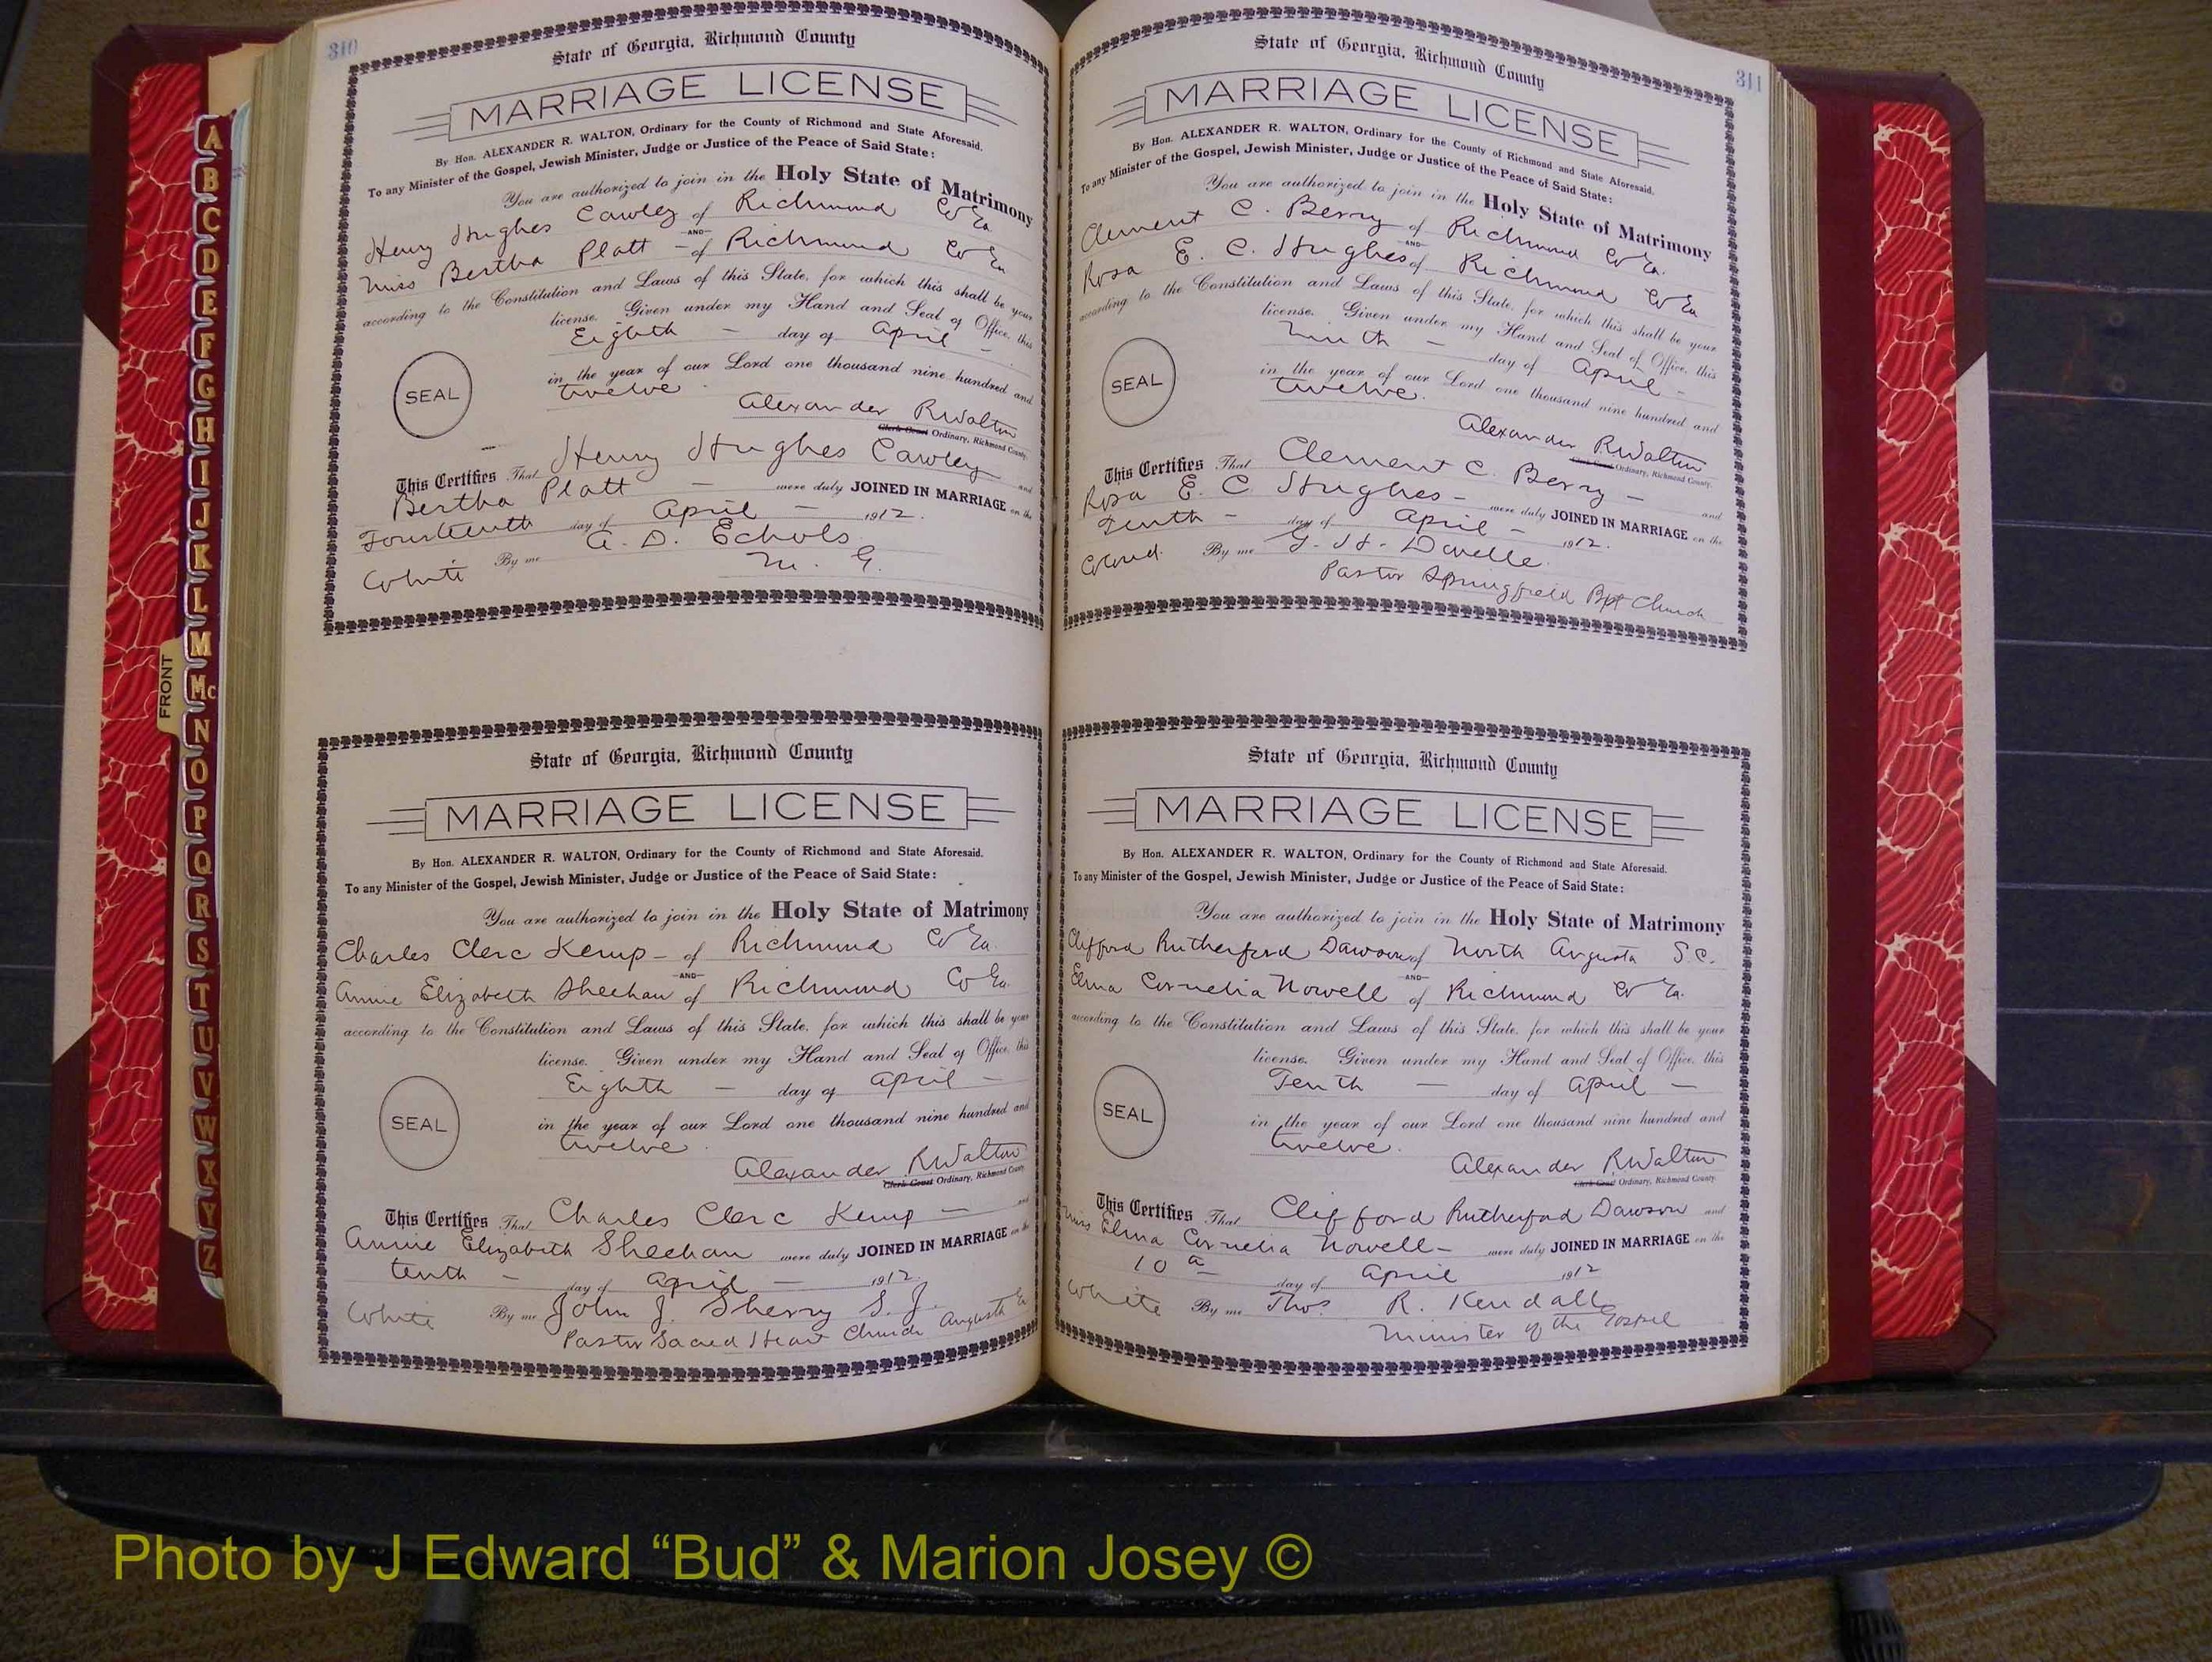 310
State of Georgia, Richmond County
MARRIAGE LICENSE
By Hon. ALEXANDER R. WALTON, Ordinary for the County of Richmond and State Aforesaid.
To any Minister of the Gospel, Jewish Minister, Judge or Justice of the Peace of Said State:
You are authorized to join in the Holy State of Matrimony
Henry Hughes Cawley of Richmond Co Ga
AND
Miss Bertha Platt - of Richmond Co Ga
according to the Constitution and Laws of this State, for which this shall be your
license. Given under my Hand and Seal of Office, this
Eighth - day of April -
in the year of our Lord one thousand nine hundred and
twelve.
SEAL
Alexander R Walton
Clerk Court Ordinary, Richmond County.
This Certifies That Henry Hughes Cawley and
Bertha Platt - were duly JOINED IN MARRIAGE on the
Fourteenth day of April - 1912.
White By me A. D. Echols
M. G.
State of Georgia, Richmond County
MARRIAGE LICENSE
By Hon. ALEXANDER R. WALTON, Ordinary for the County of Richmond and State Aforesaid.
To any Minister of the Gospel, Jewish Minister, Judge or Justice of the Peace of Said State:
You are authorized to join in the Holy State of Matrimony
Charles Clerc Kemp - of Richmond Co Ga.
AND
Annie Elizabeth Sheehan of Richmond Co Ga.
according to the Constitution and Laws of this State, for which this shall be your
license. Given under my Hand and Seal of Office, this
Eighth - day of April -
in the year of our Lord one thousand nine hundred and
twelve.
SEAL
Alexander R Walton
Clerk Court Ordinary, Richmond County
This Certifies That Charles Clerc Kemp - and
Annie Elizabeth Sheehan were duly JOINED IN MARRIAGE on the
tenth - day of April - 1912.
White By me John J. Sherry S. J.
Pastor Sacred Heart Church Augusta Ga
311
State of Georgia, Richmond County
MARRIAGE LICENSE
By Hon. ALEXANDER R. WALTON, Ordinary for the County of Richmond and State Aforesaid.
To any Minister of the Gospel, Jewish Minister, Judge or Justice of the Peace of Said State:
You are authorized to join in the Holy State of Matrimony
Clement C. Berry of Richmond Co Ga.
AND
Rosa E. C. Hughes of Richmond Co Ga
according to the Constitution and Laws of this State, for which this shall be your
license. Given under my Hand and Seal of Office, this
Ninth - day of April -
in the year of our Lord one thousand nine hundred and
twelve.
SEAL
Alexander R. Walton
Clerk Court Ordinary, Richmond County.
This Certifies That Clement C. Berry - and
Rosa E. C Hughes - were duly JOINED IN MARRIAGE on the
Tenth - day of April - 1912.
By me
Pastor Springfield Bpt Church
State of Georgia, Richmond County
MARRIAGE LICENSE
By Hon. ALEXANDER R. WALTON, Ordinary for the County of Richmond and State Aforesaid.
To any Minister of the Gospel, Jewish Minister, Judge or Justice of the Peace of Said State:
You are authorized to join in the Holy State of Matrimony
Clifford Rutherford Dawson of North Augusta S C.
AND
Elma Cornelia Nowell of Richmond Co Ga.
according to the Constitution and Laws of this State, for which this shall be your
license. Given under my Hand and Seal of Office, this
Tenth - day of April -
in the year of our Lord one thousand nine hundred and
twelve.
SEAL
Alexander R. Walton
Clerk Court Ordinary, Richmond County
This Certifies That Clifford Rutherford Dawson and
Miss Elma Cornelia Nowell - were duly JOINED IN MARRIAGE on the
10 day of April 1912
White By me Thos. R. Kendall
Minister of the Gospel
FRONT
A
B
C
D
E
F
G
H
I
J
K
L
M
Mc
N
O
P
Q
R
S
T
U
V
W
X
Y
Z
Photo by J Edward “Bud” & Marion Josey ©